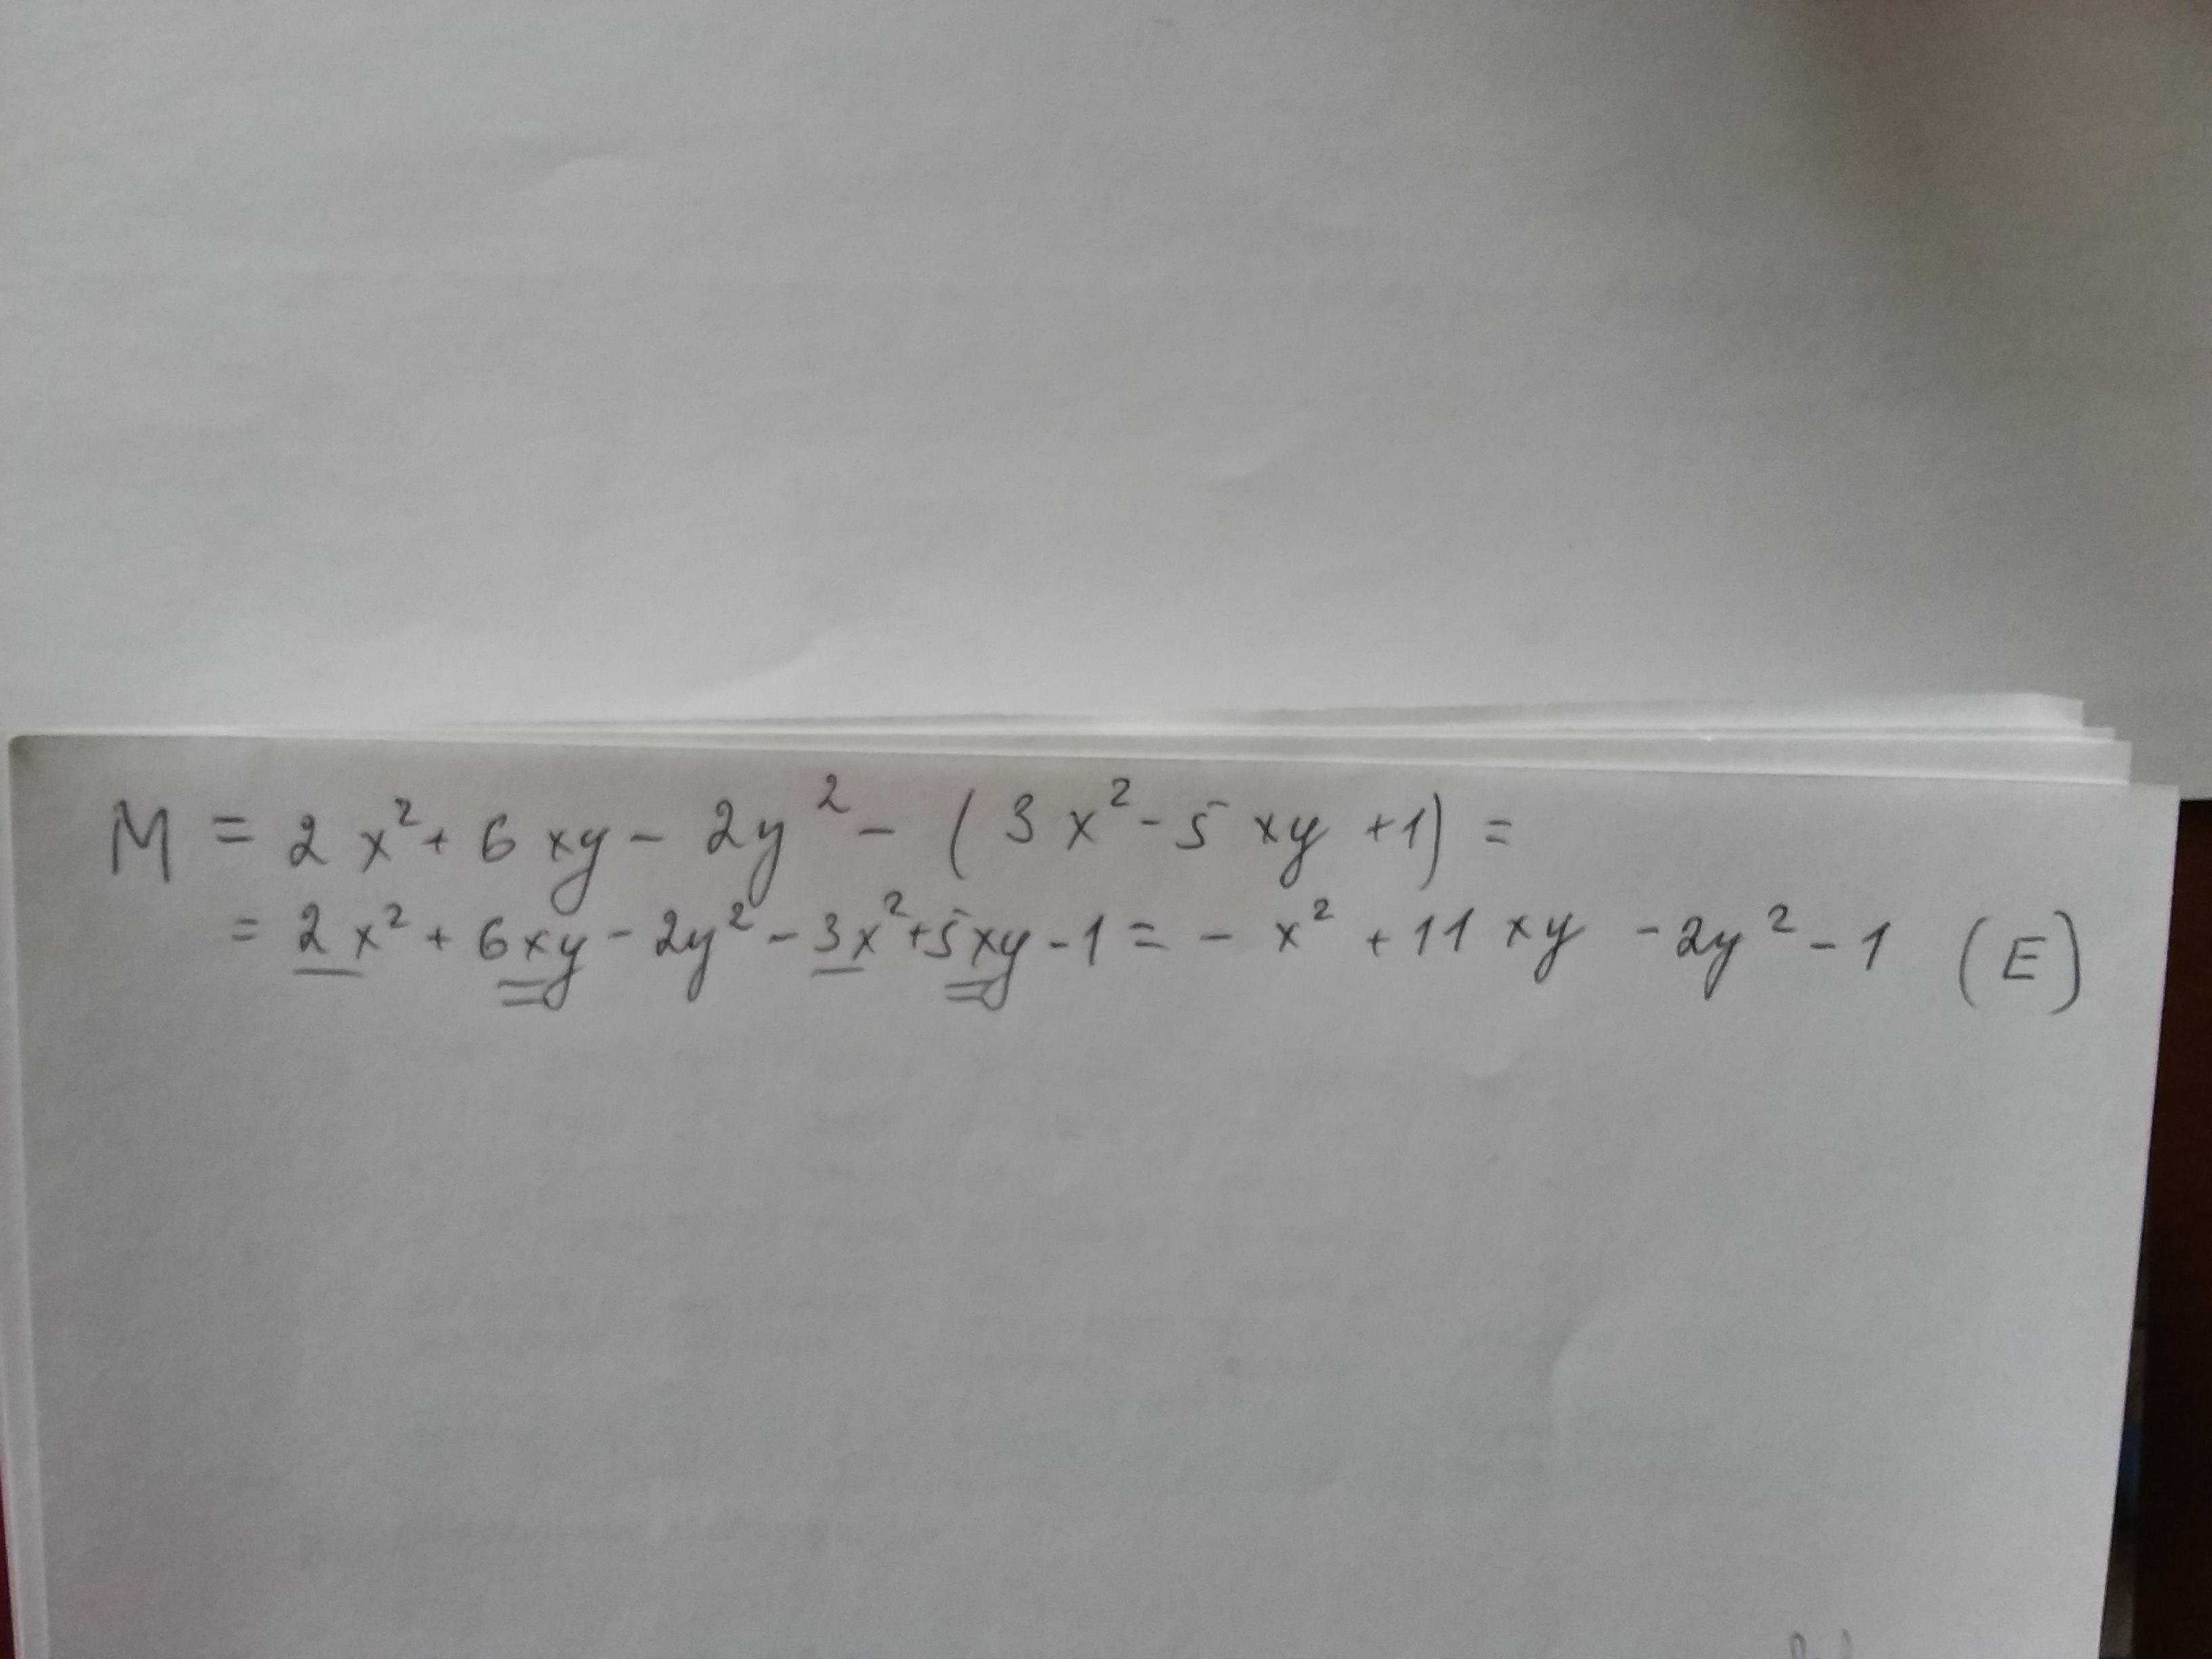 M = 2x² + 6xy - 2y² - (3x² - 5xy + 1) =
= 2x² + 6xy - 2y² - 3x² + 5xy - 1 = - x² + 11xy - 2y² - 1 (E)